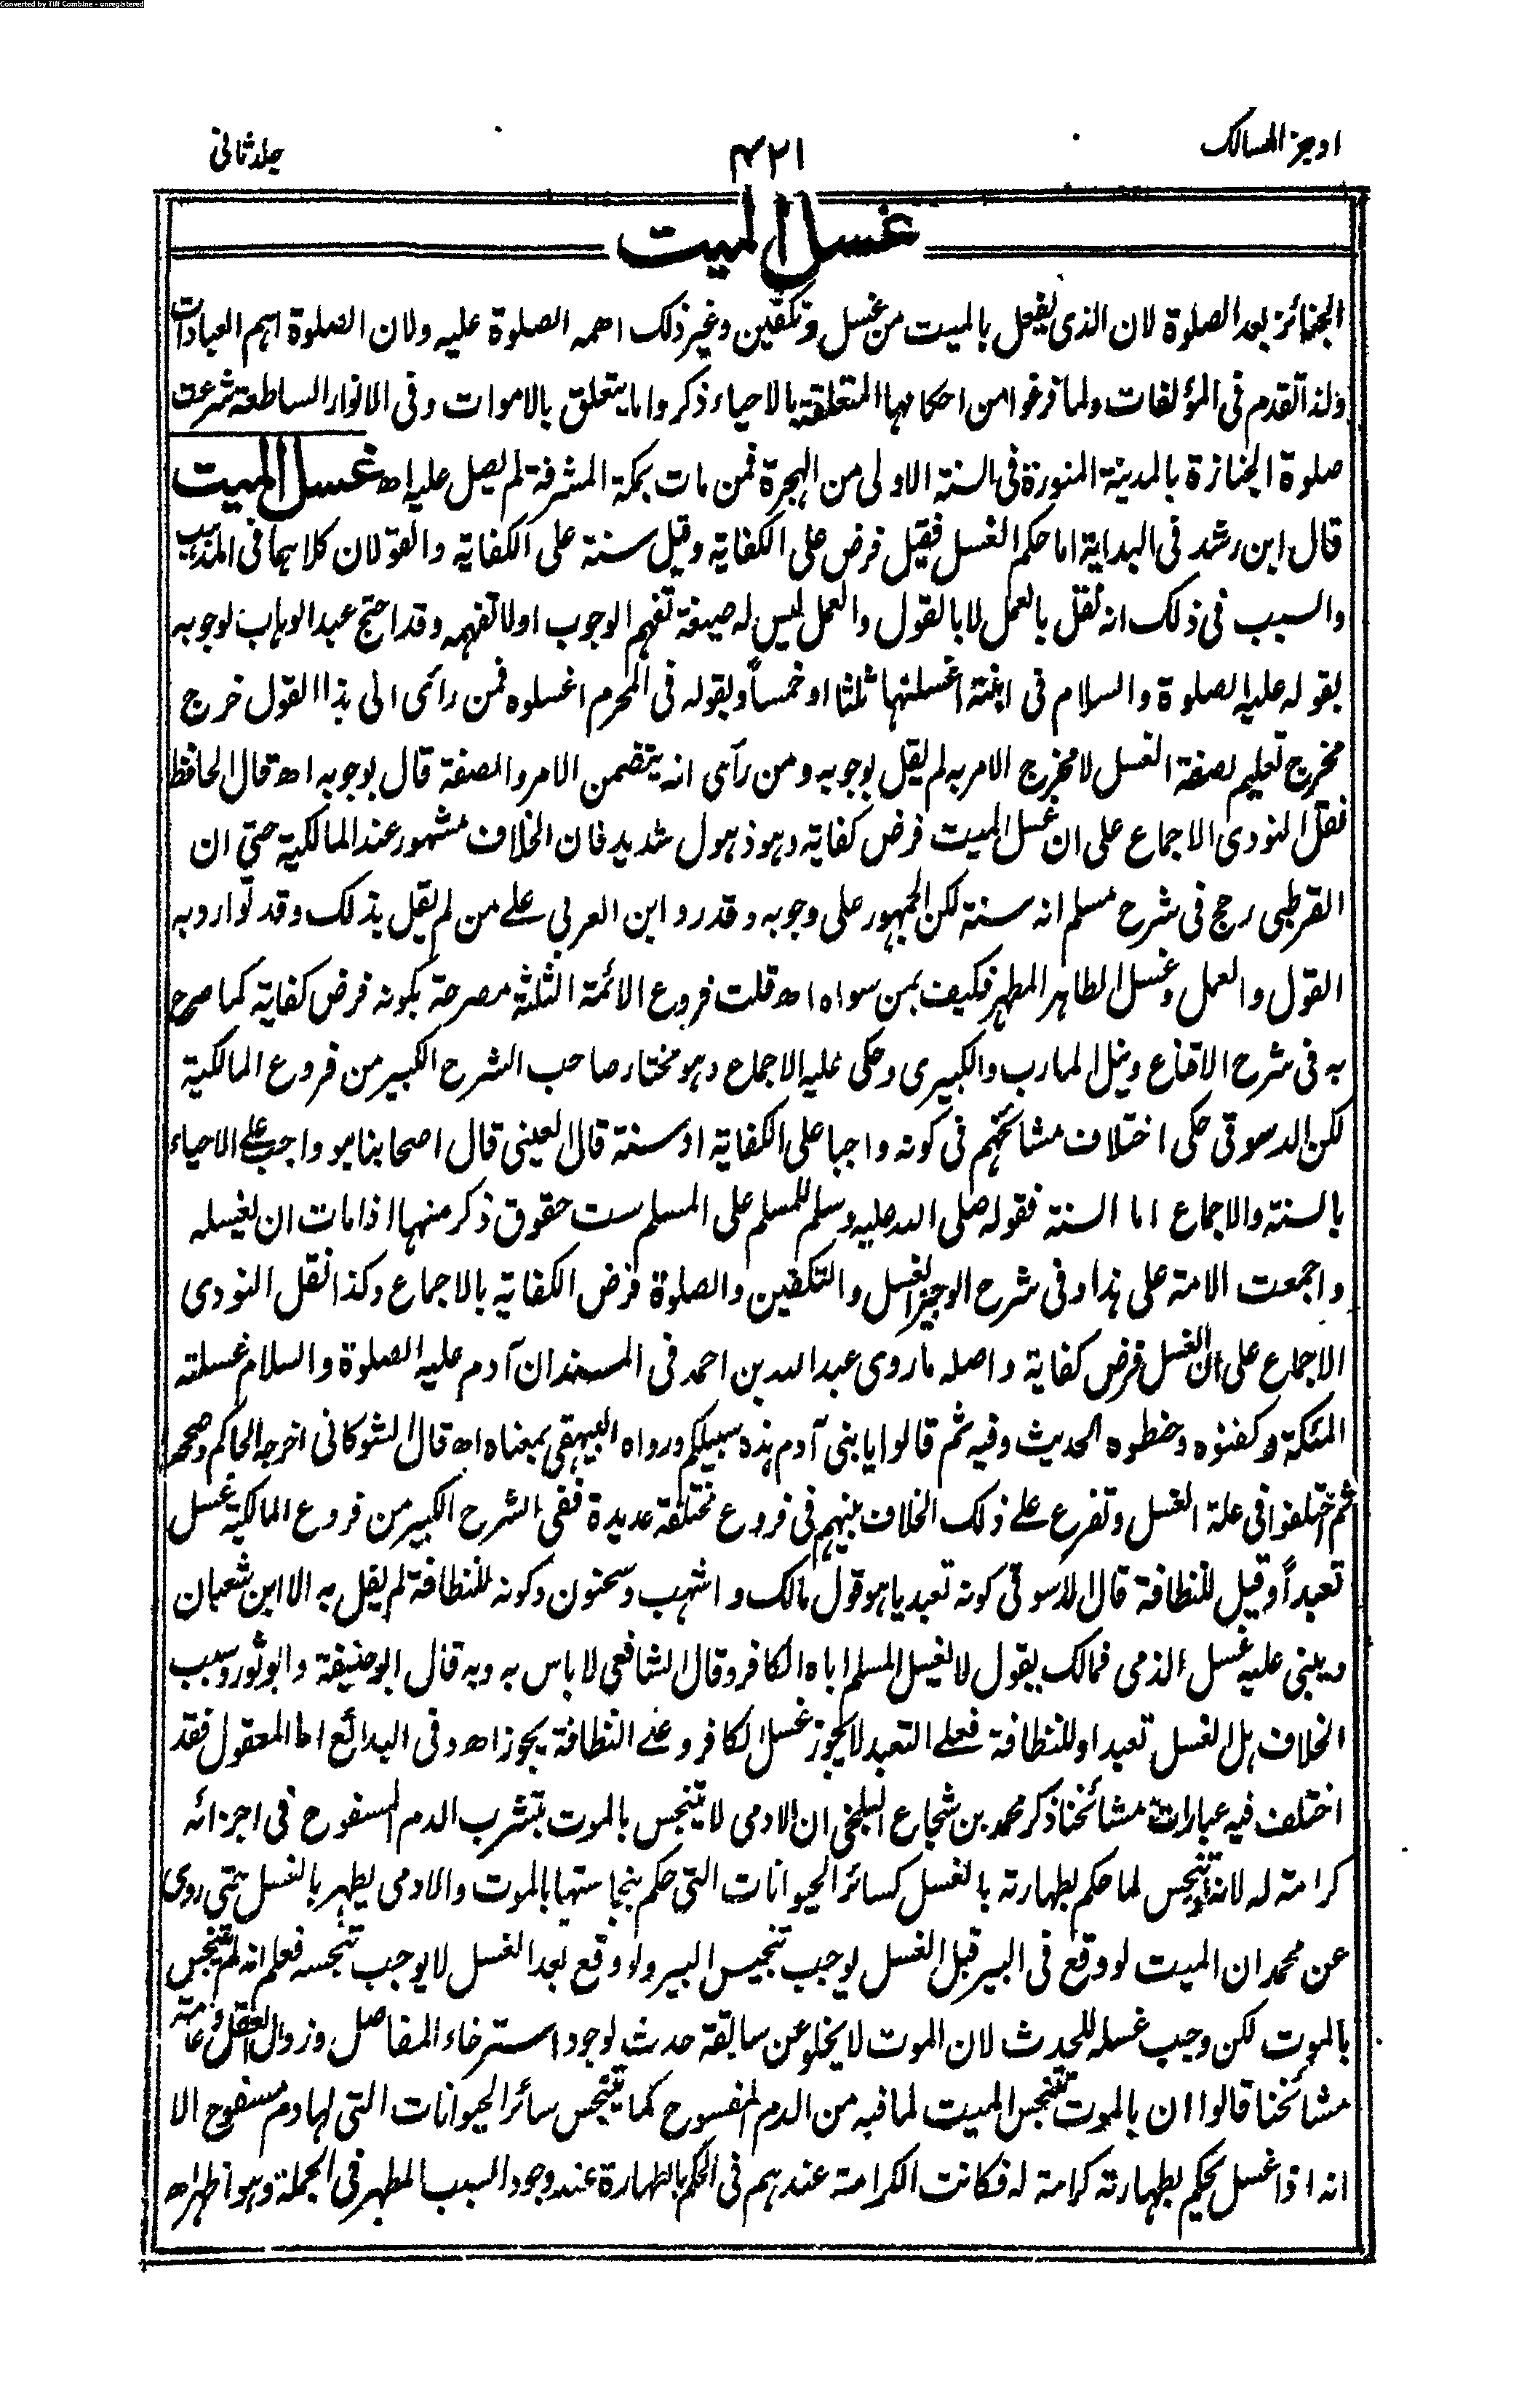 Converted by Tiff Combine - unregistered
اوجز المسالك
۴۲۱
جلد ثانی
غسل المیت
الجنائز بعد الصلوة لان الذی یفعل بالمیت من غسل وتكفین وغیر ذلك اهمه الصلوة علیه ولان الصلوة اہم العبادات
ولذا تقدم فی المؤلفات ولما فرغوا من احكامہا المتعلقة بالاحیاء ذكروا ما یتعلق بالاموات وفی الانوار الساطعة شرعت
صلوة الجنازة بالمدینة المنورة فی السنة الاولی من الہجرة فمن مات بمكة المشرفة لم یصل علیه اھ غسل المیت
قال ابن رشد فی البدایة اما حكم الغسل فقیل فرض علی الكفایة وقیل سنة علی الكفایة والقولان كلاہما فی المذہب
والسبب فی ذلك انه نقل بالعمل لا بالقول والعمل لیس له صیغة تفہم الوجوب اولا تفہمه وقد احتج عبد الوہاب لوجوبه
بقوله علیه الصلوة والسلام فی ابنته اغسلنہا ثلثا او خمساً وبقوله فی المحرم اغسلوه فمن رائی الی ہذا القول خرج
مخرج تعلیم لصفة الغسل لا مخرج الامر به لم یقل بوجوبه ومن رآی انه یتضمن الامر والصفة قال بوجوبه اھ قال الحافظ
نقل النووی الاجماع علی ان غسل المیت فرض كفایة وہو ذہول شدید فان الخلاف مشہور عند المالكیة حتی ان
القرطبی رجح فی شرح مسلم انه سنة لكن الجمہور علی وجوبه وقد رد ابن العربی علے من لم یقل بذلك وقد توارد به
القول والعمل وغسل الطاہر المطہر فكیف بمن سواه اھ قلت فروع الائمة الثلثة مصرحة بكونه فرض كفایة كما صرح
به فی شرح الاقناع ونیل المارب والكبیری وحكی علیه الاجماع وہو مختار صاحب الشرح الكبیر من فروع المالكیة
لكن الدسوقی حكی اختلاف مشائخہم فی كونه واجبا علی الكفایة او سنة قال العینی قال اصحابنا ہو واجب علی الاحیاء
بالسنة والاجماع اما السنة فقوله صلی الله علیه وسلم للمسلم علی المسلم ست حقوق ذكر منہا اذا مات ان یغسله
واجمعت الامة علی ہذا وفی شرح الوجیز الغسل والتكفین والصلوة فرض الكفایة بالاجماع وكذا نقل النووی
الاجماع علی ان الغسل فرض كفایة واصله ما روی عبد الله بن احمد فی المسند ان آدم علیه الصلوة والسلام غسلته
الملٰئكة وكفنوه وحنطوه الحدیث وفیه ثم قالوا یا بنی آدم ہذه سبیلكم ورواه البیہقی بمعناه اھ قال الشوكانی اخرجه الحاكم وصححه
ثم اختلفوا فی علة الغسل وتفرع علے ذلك الخلاف بینہم فی فروع مختلفة عدیدة ففی الشرح الكبیر من فروع المالكیة غسل
تعبداً وقیل للنظافة قال الدسوقی كونه تعبدیا ہو قول مالك واشہب وسحنون وكونه للنظافة لم یقل به الا ابن شعبان
ویبنی علیه غسل الذمی فمالك یقول لا یغسل المسلم اباه الكافر وقال الشافعی لا باس به وبه قال ابو حنیفة وابو ثور وسبب
الخلاف ہل الغسل تعبد او للنظافة فعلے التعبد لا یجوز غسل الكافر وعلے النظافة یجوز اھ وفی البدائع اما المعقول فقد
اختلف فیه عبارات مشائخنا ذكر محمد بن شجاع البلخی ان الادمی لا یتنجس بالموت بتشرب الدم المسفوح فی اجزائه
كرامة له لانه لو تنجس لما حكم بطہارته بالغسل كسائر الحیوانات التی حكم بنجاستہا بالموت والادمی یطہر بالغسل حتی روی
عن محمد ان المیت لو وقع فی البیر قبل الغسل یوجب تنجیس البیر ولو وقع بعد الغسل لا یوجب تنجسه فعلم انه لم یتنجس
بالموت لكن وجب غسله للحدث لان الموت لا یخلو عن سابقة حدث لوجود استرخاء المفاصل وزوال العقل وعامة
مشائخنا قالوا ان بالموت یتنجس المیت لما فیه من الدم المفسوح كما یتنجس سائر الحیوانات التی لہا دم مسفوح الا
انه اذا غسل یحكم بطہارته كرامة له فكانت الكرامة عندہم فی الحكم بالطہارة عند وجود السبب المطہر فی الجملة وہو اظہر اھ